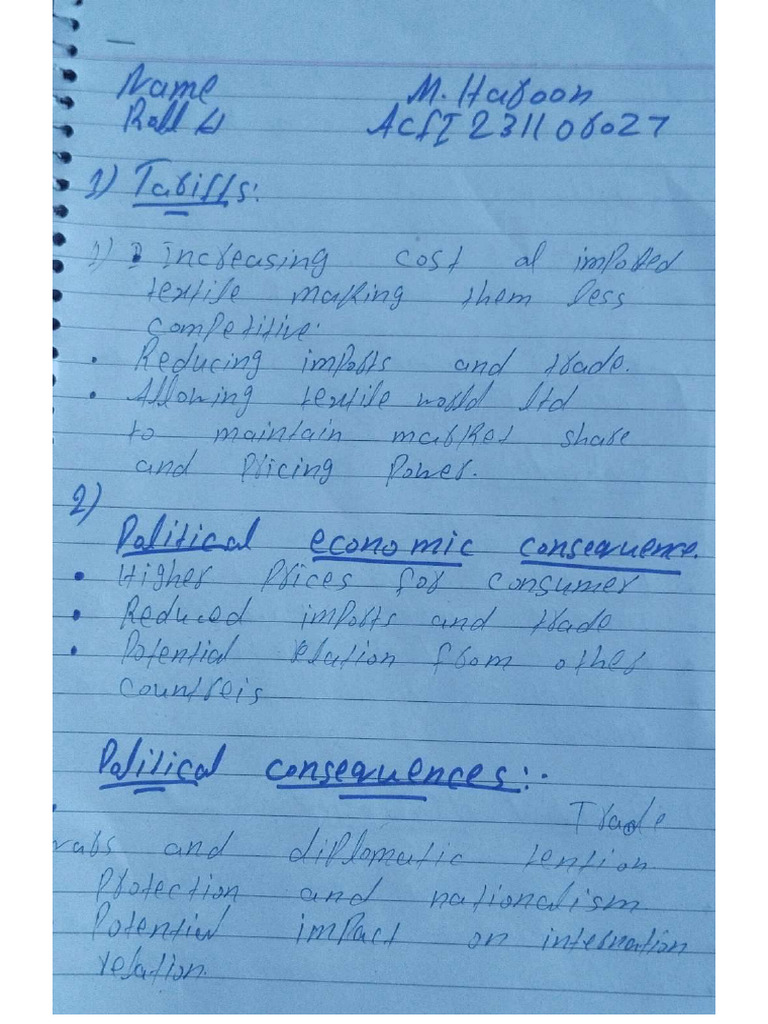 Name M. Haroon
Roll # ACFI 231106027
1) Tariffs:
1) Increasing cost of imported
textile making them less
competitive.
• Reducing imports and trade.
• Allowing textile world ltd
to maintain market share
and pricing power.
2)
Political economic consequence.
• Higher prices for consumer
• Reduced imports and trade
• Potential relation from other
countreis
Political consequences:.
Trade
wars and diplomatic tention
Protection and nationalism
Potential impact on internation
relation.